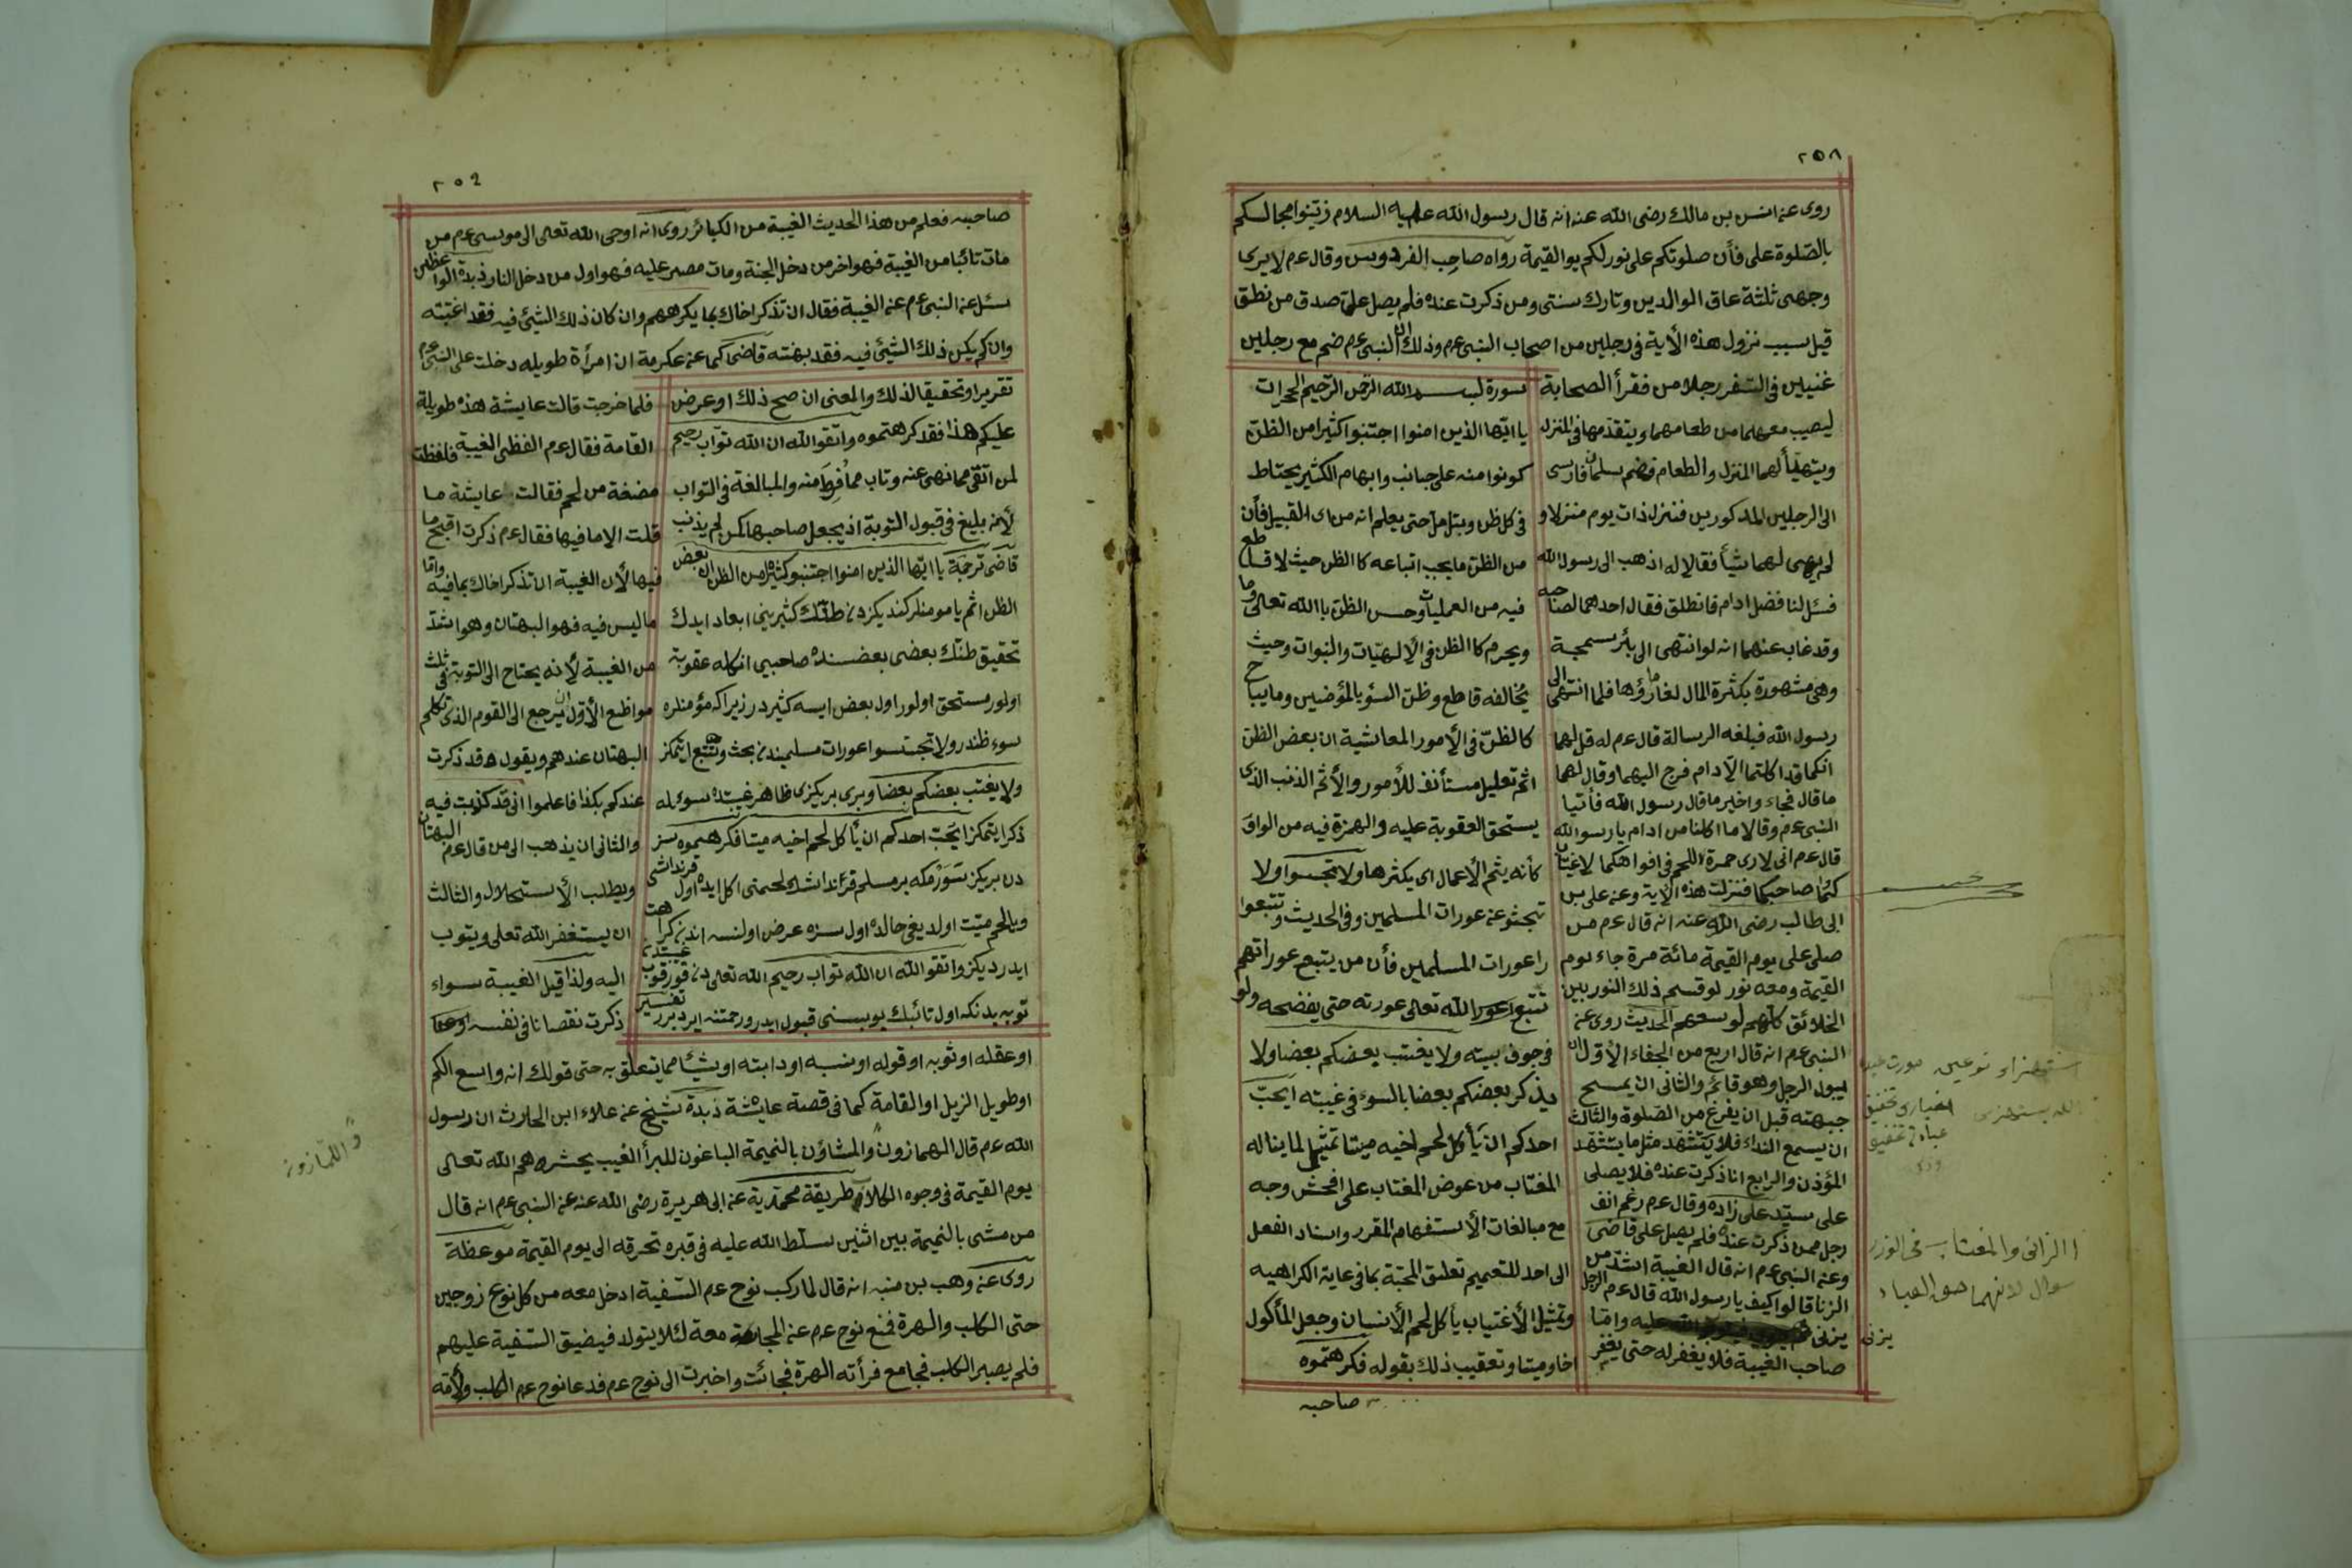 ٢٥٨
روى عنه انس بن مالك رضى الله عنه انه قال رسول الله عليه السلام زيّنوا مجالسكم
بالصّلوة على فأن صلوتكم على نور لكم يوالقيمة رواه صاحب الفردوس وقال عم لا يرى
وجهى ثلثة عاق الوالدين وتارك سنتى ومن ذكرت عنده فلم يصل علىّ صدق من نطق
قيل سبب نزول هذه الأية فى رجلين من اصحاب النبى عم وذلك ان النبى عم ضم مع رجلين
غنيين فى السّفر رجلا من فقرأ الصحابة
ليصيب معهما من طعامهما ويتقدّمها فى المنزل
ويتهيّأ لهما المنزل والطعام فضم سلمان فارسى
الى الرجلين المذكورين فنزل ذات يوم منزلا و
لم يهيى لهما شيأ فقالا له اذهب الى رسول الله
فسئل لنا فضل ادام فانطلق فقال احدهما لصاحبه
وقد غاب عنهما انه لو انتهى الى بئر سميحة
وهى مشهورة بكثرة المال لغار ماؤها فلما انتهى الى
رسول الله فبلغه الرسالة قال عم له قل لهما
انكما قد اكلتما الادام فرج اليهما وقال لهما
ما قال فجاء واخبر ما قال رسول الله فأتيا
النبى عم وقالا ما اكلنا من ادام يا رسو الله
قال عم انى لارى حمرة اللحم فى افواهكما لاغتيابن
كما صاحبكما فنزلت هذه الأية وعنه على بن
ابى طالب رضى الله عنه انه قال عم من
صلى على يوم القيمة مائة مرة جاء يوم
القيمة ومعه نور لو قسم ذلك النور بين
الخلائق كلّهم لوسعهم الحديث روى عنه
النبى عم انه قال اربع من الجفاء الأوّل ان
يبول الرجل وهو قائم والثانى ان يمسح
جبهته قبل ان يفرغ من الصّلوة والثالث
ان يسمع النداء فلا يتشهد مثل ما يتشهد
المؤذن والرابع ان ذكرت عنده فلا يصلى
على سيّد على زاده وقال عم رغم انف
رجل ممن ذكرت عنده فلم يصل على قاضى
وعنه النبى عم انه قال الغيبة اشدّ من
الزنا قالوا كيف يا رسول الله قال عم الرجل
يزنى عليه وامّا
صاحب الغيبة فلا يغفر له حتى يغفر
سورة بسم الله الرّحمن الرّحيم الحجرات
يا ايّها الذين امنوا اجتنبوا كثيرا من الظنّ
كونوا منه على جانب وابهام الكثير يحتاط
فى كل ظن ويتأمل حتى يعلم انه من اى القبيل فأن
من الظنّ ما يجب اتباعه كا الظن حيث لا قاطع
فيه من العمليات وحسن الظن با الله تعالى وما
ويحرم كا الظن فى الألهيّات والنبوات وحيث
يخالفه قاطع وظنّ السؤ بالمؤمنين وما يباح
كا لظنّ فى الأمور المعاشية ان بعض الظن
اثم تعليل مستأنف للأمور والأثم الذنب الذى
يستحق العقوبة عليه والهمزة فيه من الواو
كأنه يثم الأعمال اى يكثرها ولا تجسّسوا ولا
تبحثو عنه عورات المسلمين وفى الحديث وتتبعوا
را عورات المسلمين فأن من يتبع عوراتهم
تتبع الله تعالى عورته حتى يفضحه ولو
فى جوف بيته ولا يغتب بعضكم بعضا ولا
يذكر بعضكم بعضا بالسوء فى غيبته ايحبّ
احدكم ان يأكل لحم اخيه ميتا تمثيل لما يناله
المغتاب من عوض المغتاب على افحش وجه
مع مبالغات الأستفهام المقرر واسناد الفعل
الى احد للتعميم تعليق المحبّة بما فى غاية الكراهيه
وتمثيل الأغتياب بأكل لحم الأنسان وجعل المأكول
اخا وميتا وتعقيب ذلك بقوله فكرهتموه
صاحبه
الزانى والمغتاب فى الوزر
سوال لانهما حق العباد
يزنى
٢٥٩
صاحبه فعلم من هذا الحديث الغيبة من الكبائر روى انه اوحى الله تعالى الى موسى عم من
مات تائبا من الغيبة فهو اخر من دخل الجنة ومات مصر عليه فهو اول من دخل النار زبدة الواعظين
سئل عنه النبى عم عنه الغيبة فقال ان تذكر اخاك بما يكرههم وان كان ذلك الشيئ فيه فقد اغتبته
وان لم يكن ذلك الشيئ فيه فقد بهته قاضى كما عنه عكرمة ان امرأة طويله دخلت على النبى عم
تقريرا وتحقيقا لذلك والمعنى ان صح ذلك او عرض
عليكم هذا فقد كرهتموه واتقوا الله ان الله توّاب رحيم
لمن اتقى مما نهى عنه وتاب مما فرط منه والمبالغة فى التواب
لأنه بليغ فى قبول التوبة اذ يجعل صاحبها كمن لم يذنب
قاضى ترجمة يا ايّها الذين امنوا اجتنبو كثيرا من الظن ان بعض
الظن اثم يا مومنلر كنديكزدن ظنّك كثيرينى ابعاد ايدك
تحقيق ظنك بعضى بعضسنده صاحبى انكله عقوبة
اولور مستحق اولور اول بعض ايسه كثيردر زيرا كه مؤمنلره
سوء ظندر ولا تجسّسوا عورات مسليمندن بحث وتتبع ايتمكز
ولا يغتب بعضكم بعضا وبرى بريكزى ظاهر غيبتده سوءيله
ذكر ايتمكز ايحبّ احدكم ان يأكل لحم اخيه ميتا فكرهتموه سز
دن بريكز سورمكه بر مسلم قرنداشك لحمنى اكل ايده اول قرنداشى
وبالحم ميّت اولديغى حالده اول سزه عرض اولنسه اندن كراهت
ايدرديكز واتقوا الله ان الله توّاب رحيم الله تعالى دن قورقوب غيبتدن
توبه يدنكه اول تائبك توبسنى قبول ايدر ورحمتنه ايردرر تفسير
فلما خرجت قالت عايشة هذه طويلة
القامة فقال عم الفظى الغيبة فلفظت
مضغة من لحم فقالت عايشة ما
قلت الا ما فيها فقال عم ذكرت اقبح ما
فيها لأن الغيبة ان تذكر اخاك بما فيه وامّا
ما ليس فيه فهو البهتان وهو اشدّ
من الغيبة لأنه يحتاج الى التوبة فى ثلث
مواظع الأوّل ان يرجع الى القوم الذى تكلم
البهتان عندهم ويقول قد ذكرت
عندكم بكذا فاعلموا انى قد كذبت فيه
والثانى ان يذهب الى من قال عم البهتان
ويطلب الأستحلال والثالث
ان يستغفر الله تعلى ويتوب
اليه ولذا قيل الغيبة سواء
ذكرت نقصانا فى نفسه
او عقله او ثوبه او قوله او نسبه او دابته او شيئا مما يتعلق به حتى قولك انه واسع الكم
او طويل الزيل او القامة كما فى قصة عايشة زبدة شيخ عنه علاء ابن الحارث ان رسول
الله عم قال الهمازون والمشاؤن بالنميمة الباغون للبرأ الغيب يحشرهم الله تعالى
يوم القيمة فى وجوه الكلاب طريقة محمّدية عنه ابى هريرة رضى الله عنه عنه النبى عم انه قال
من مشى بالنميمة بين اثنين سلّط الله عليه فى قبره تحرقه الى يوم القيمة موعظة
روى عنه وهب بن منبه انه قال لما ركب نوح عم السّفينة ادخل معه من كل نوع زوجين
حتى الكلب والهرة فمنع نوح عم عنه المجامعة معة لئلا يتولد فيضيق السّفينة عليهم
فلم يصبر الكلب فجامع فرأته الهرة فجائت واخبرت الى نوح عم فدعا نوح عم الكلب ولأمّه
واللمازون